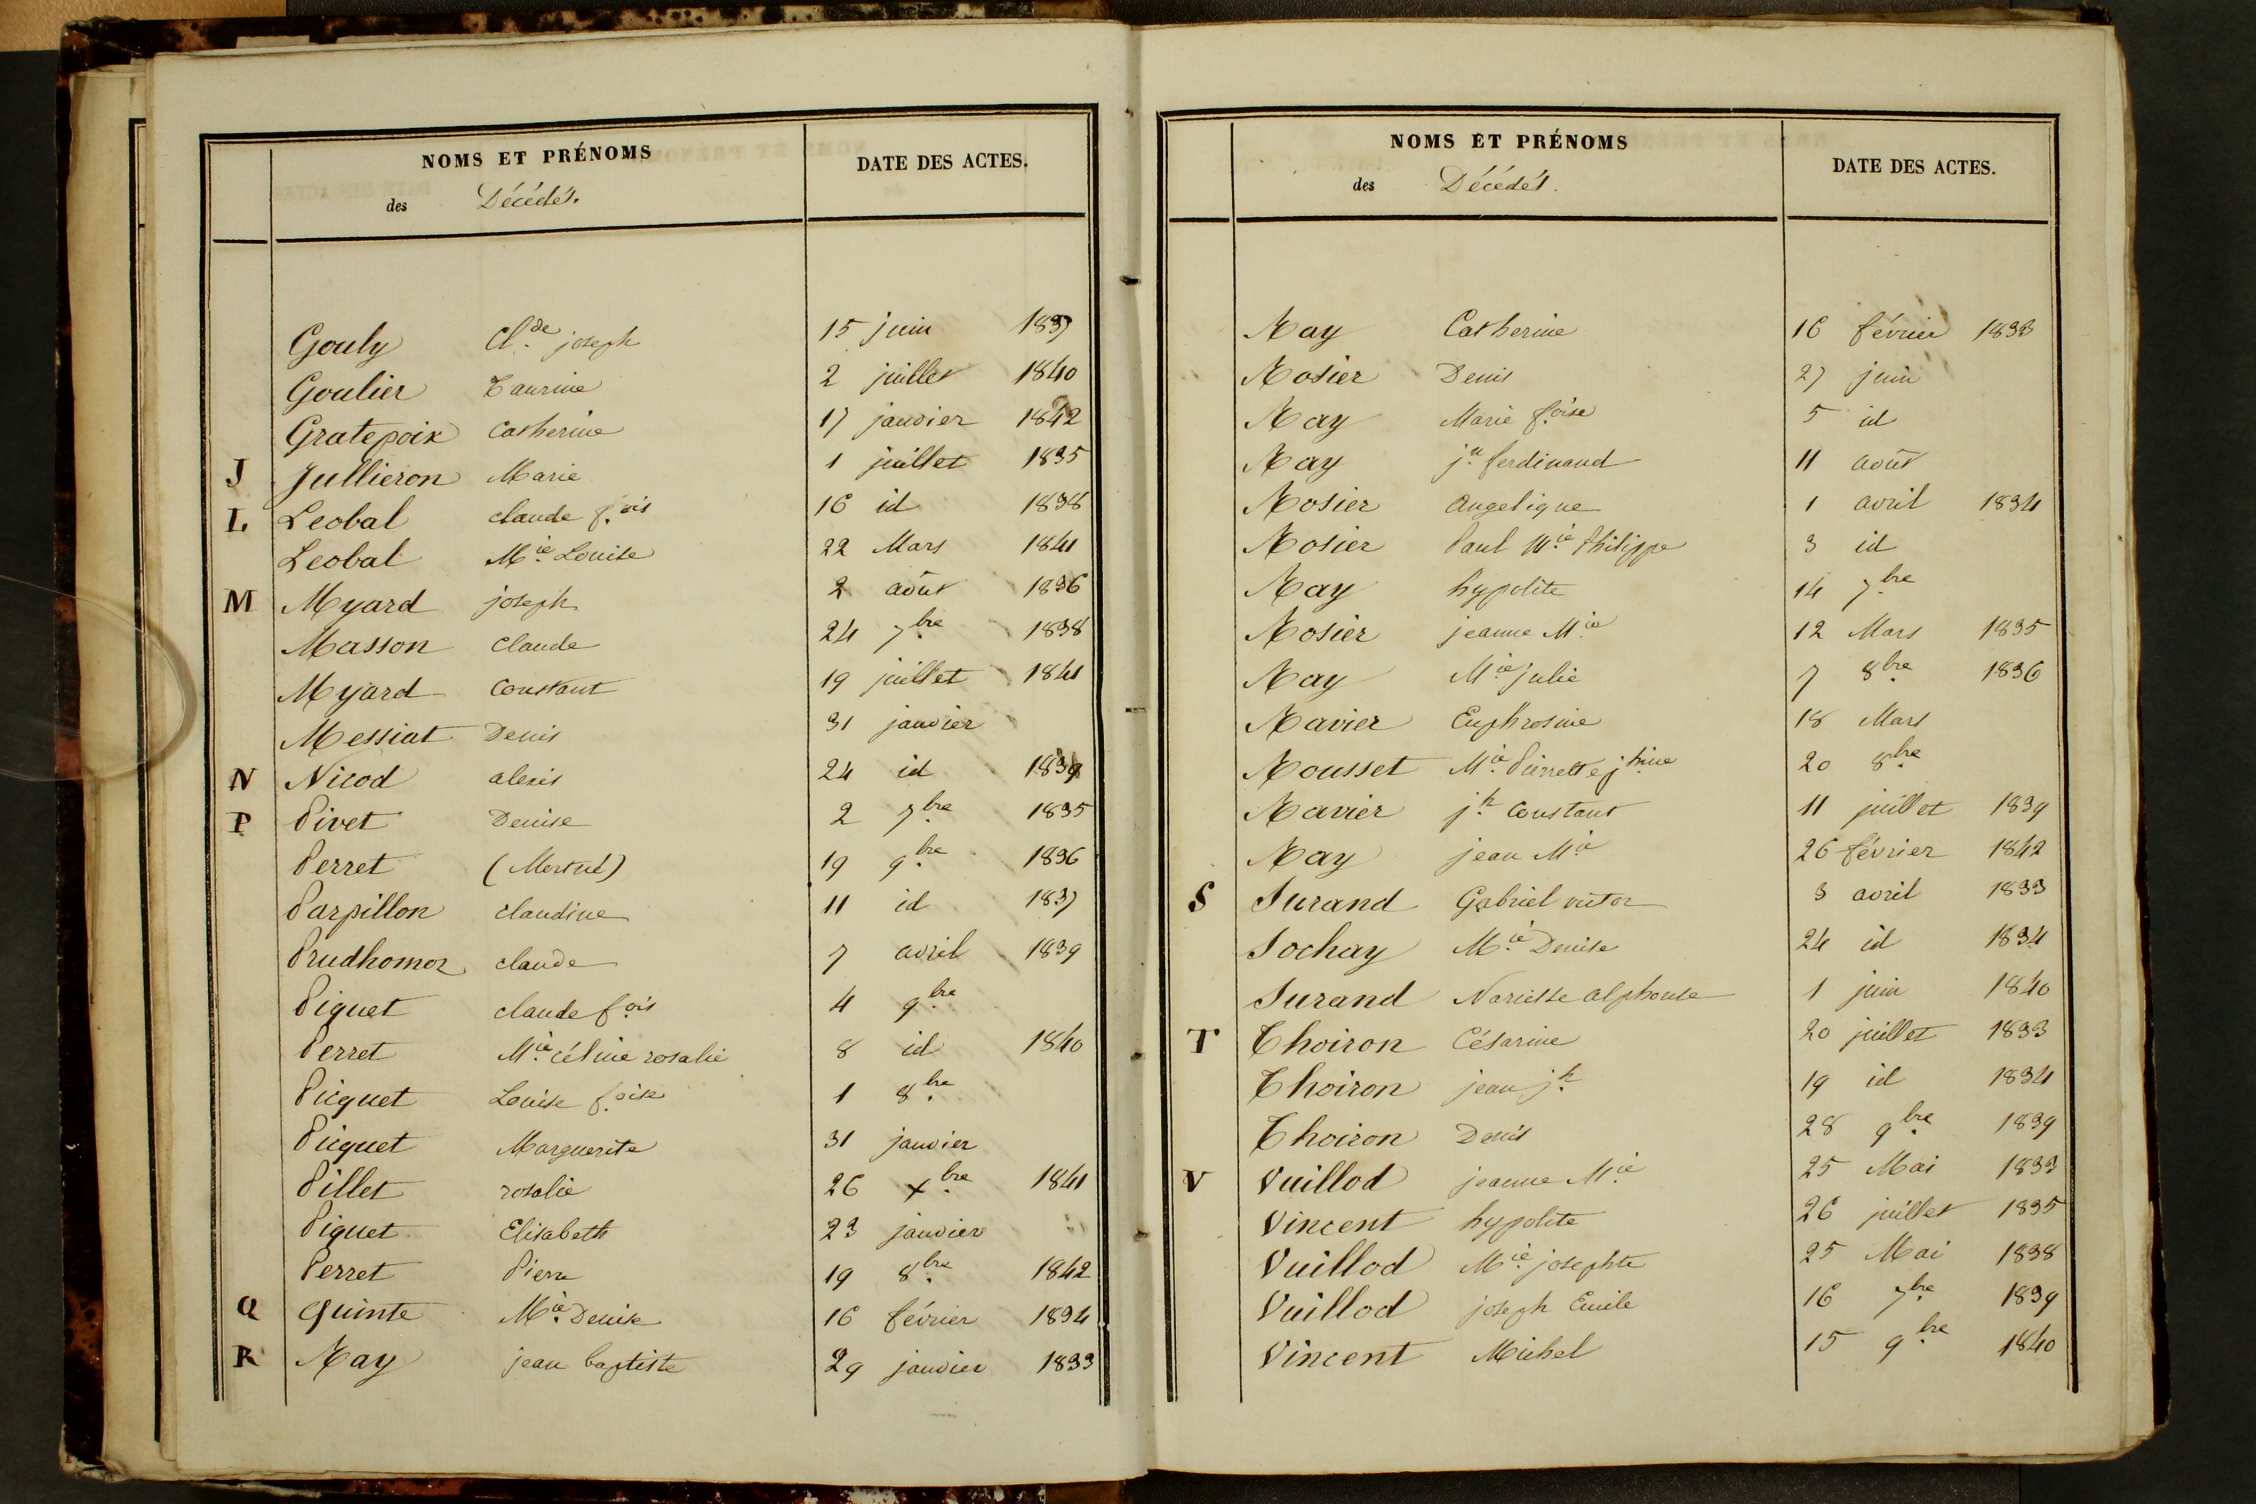 NOMS ET PRÉNOMS
des Décédés.
DATE DES ACTES.
Gouly Cl.de joseph 15 juin 1837
Goulier Taurine 2 juillet 1840
Gratepoix Catherine 17 janvier 1842
J Jullieron Marie 1 juillet 1835
L Leobal claude f.ois 16 id 1838
Leobal M.ie Louise 22 Mars 1841
M Myard joseph 2 août 1836
Masson Claude 24 7.bre 1838
Myard Constant 19 juillet 1841
Messiat Denis 31 janvier
N Nicod alexis 24 id 1839
P Pivet Denise 2 7.bre 1835
Perret (Mort né) 19 9.bre 1836
Parpillon Claudine 11 id 1837
Prudhomoz claude 7 avril 1839
Piquet claude f.ois 4 9.bre
Perret M.ie Céline rosalie 8 id 1840
Picquet Louise f.oise 1 8.bre
Picquet Marguerite 31 janvier
Pillet rosalie 26 x.bre 1841
Piquet Elisabeth 23 janvier
Perret Pierre 19 8.bre 1842
Q Quinte M.ie Denise 16 février 1834
R Ray jean baptiste 29 janvier 1833
NOMS ET PRÉNOMS
des Décédés.
DATE DES ACTES.
Ray Catherine 16 février 1833
Rosier Denis 27 juin
Ray Marie f.oise 5 id
Ray j.n ferdinand 11 août
Rosier angelique 1 avril 1834
Rosier Paul M.ie Philippe 3 id
Ray hypolite 14 7.bre
Rosier jeanne M.ie 12 Mars 1835
Ray M.ie julie 7 8.bre 1836
Ravier Euphrosine 18 Mars
Rousset M.ie Pierrette j.hine 20 8.bre
Ravier j.h Constant 11 juillet 1839
Ray jean M.ie 26 février 1842
S Surand Gabriel victor 3 avril 1833
Sochay M.ie Denise 24 id 1834
Surand alphonse 1 juin 1840
T Thoiron Césarine 20 juillet 1833
Thoiron jean j.h 19 id 1834
Thoiron Denis 28 9.bre 1839
V Vuillod jeanne M.ie 25 Mai 1833
Vincent hypolite 26 juillet 1835
Vuillod M.ie josephte 25 Mai 1838
Vuillod joseph Emile 16 7.bre 1839
Vincent Michel 15 9.bre 1840